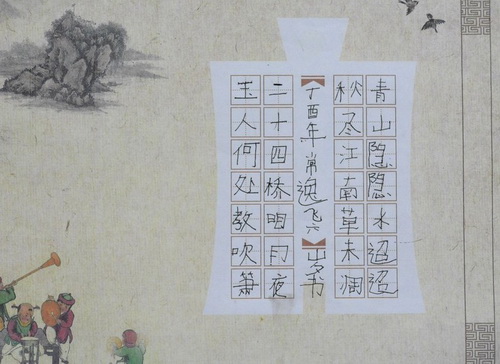 青山隐隐水迢迢
秋尽江南草未凋
丁酉年常逸飞六岁书
二十四桥明月夜
玉人何处教吹箫